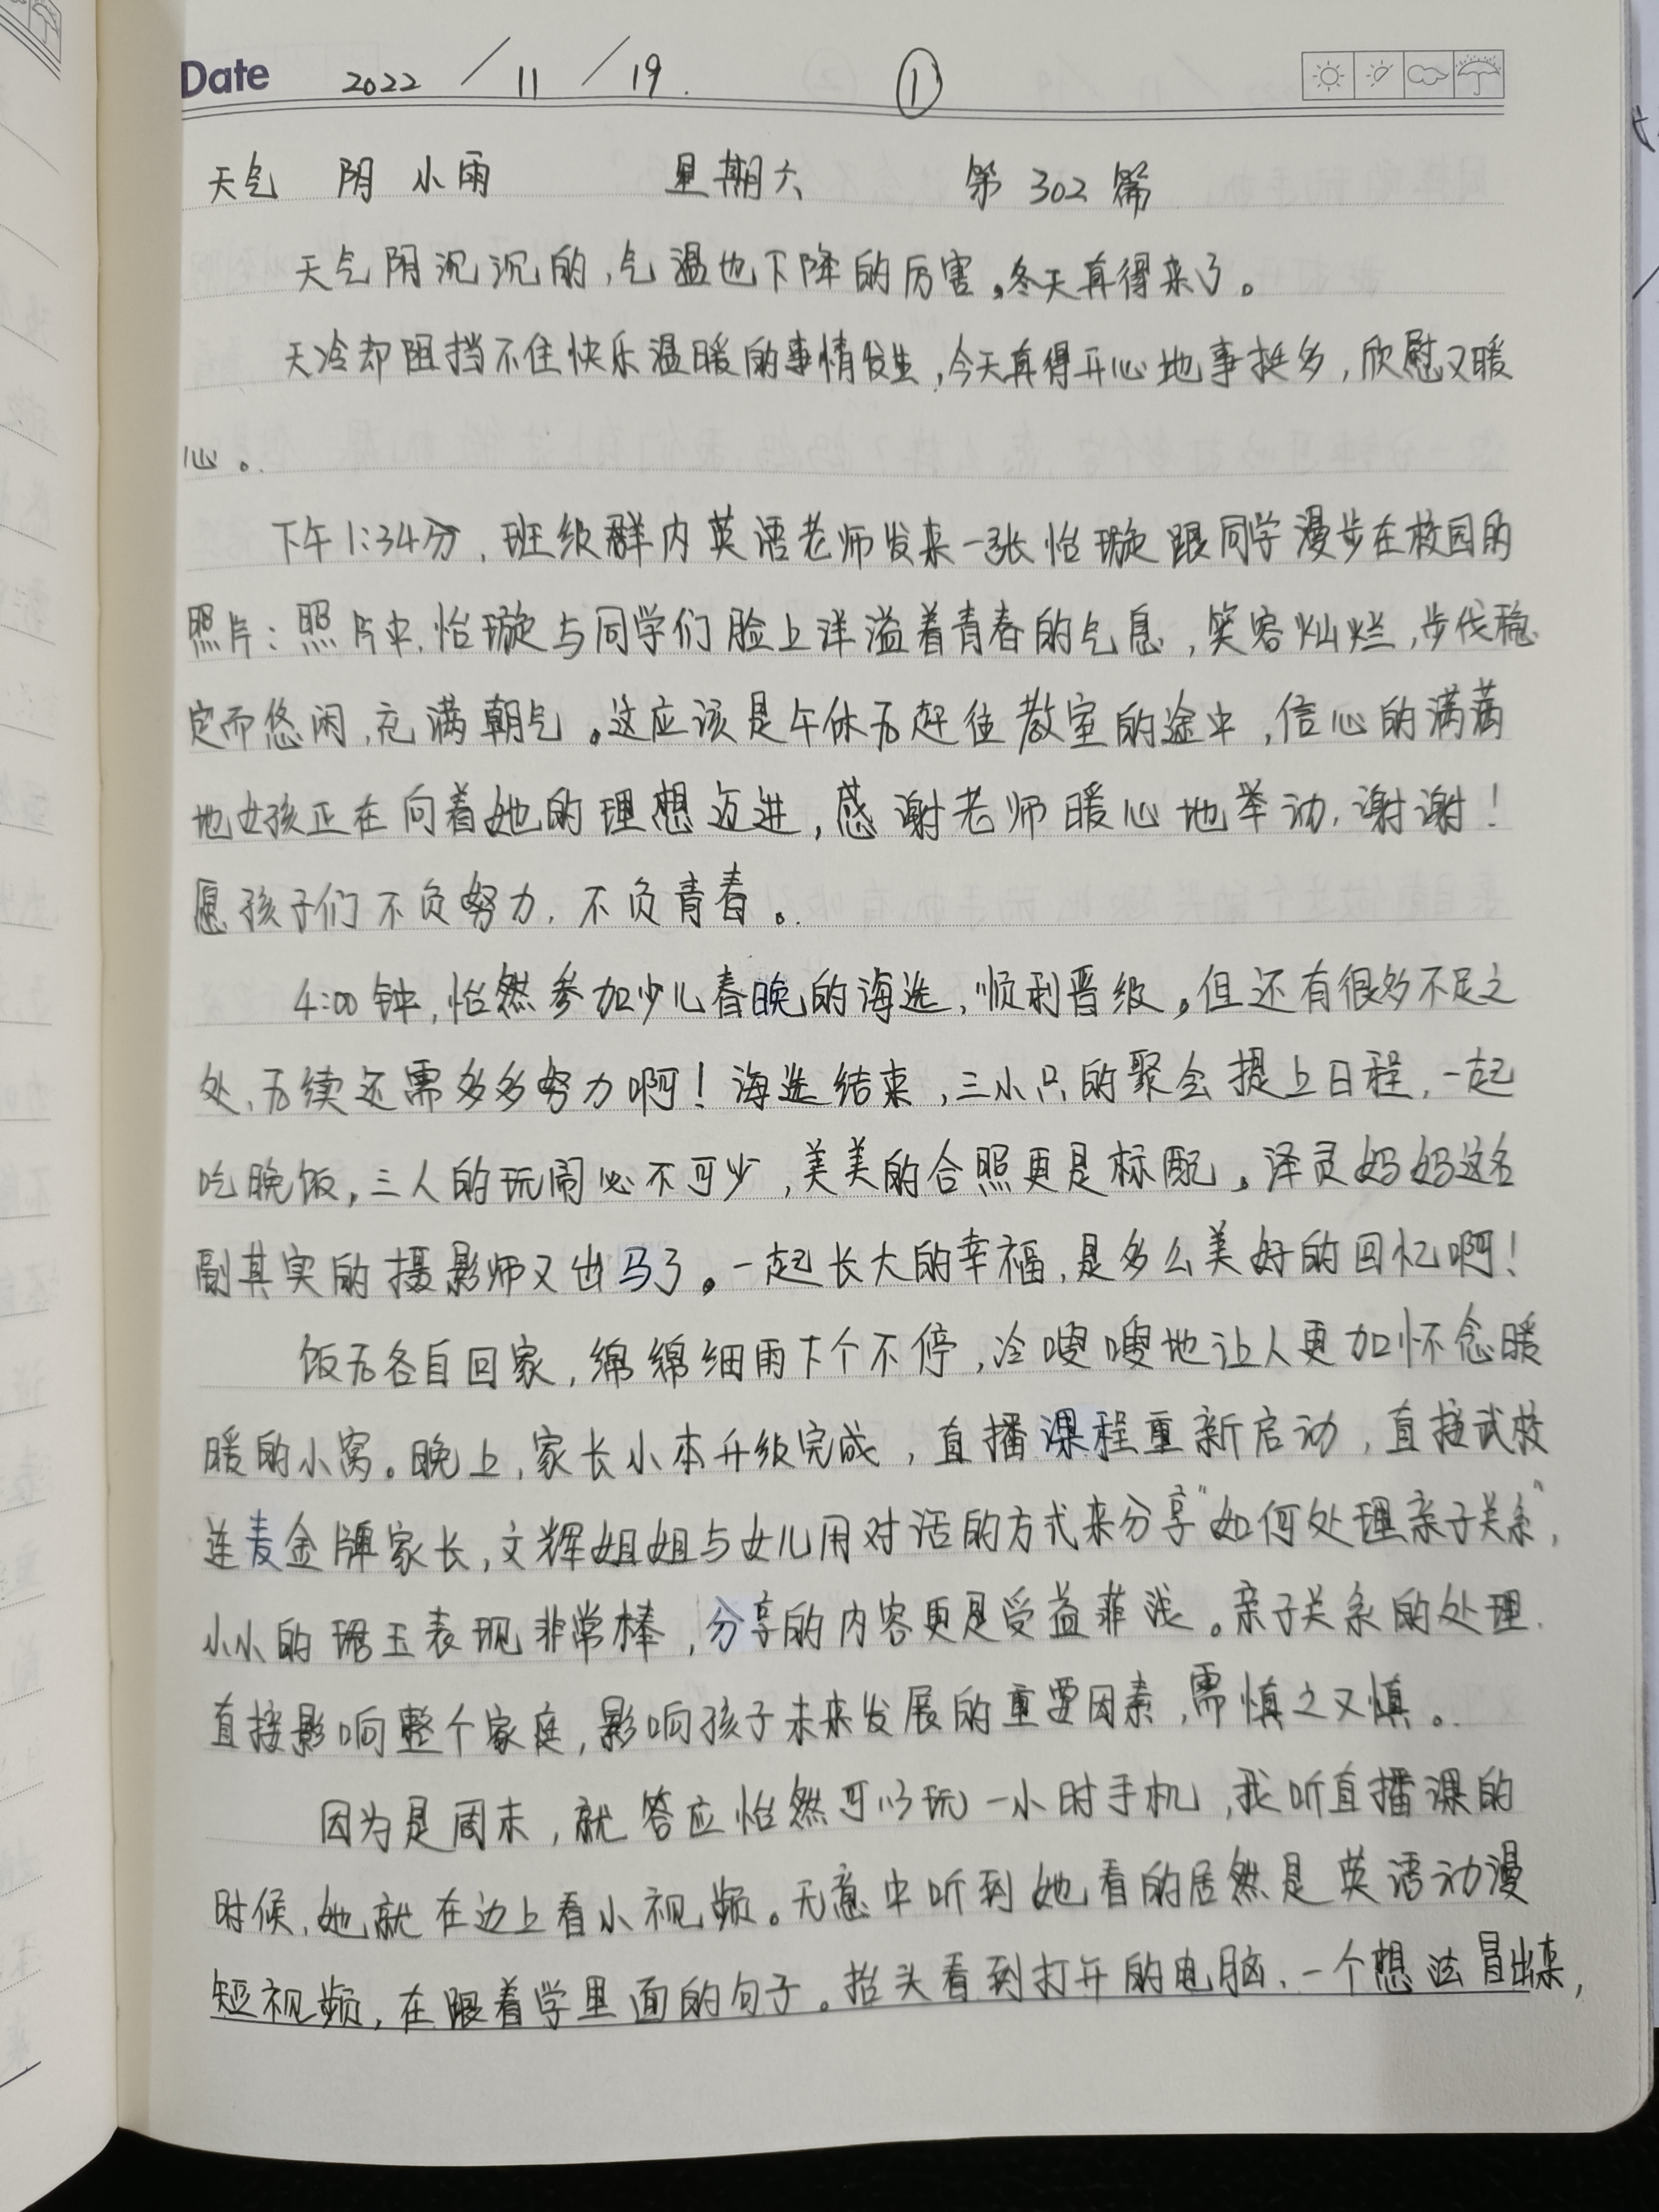 Date 2022 / 11 / 19. ①
天气 阴 小雨 星期六 第 302 篇
天气阴沉沉的，气温也下降的厉害。冬天真得来了。
天冷却阻挡不住快乐温暖的事情发生，今天真得开心地事挺多，欣慰又暖
心。
下午1:34分，班级群内英语老师发来一张怡璇跟同学漫步在校园的
照片：照片中，怡璇与同学们脸上洋溢着青春的气息，笑容灿烂，步伐稳
定而悠闲，充满朝气。这应该是午休后赶往教室的途中，信心的满满
地女孩正在向着她的理想迈进，感谢老师暖心地举动，谢谢！
愿孩子们不负努力，不负青春。
4:00钟，怡然参加少儿春晚的海选，顺利晋级。但还有很多不足之
处，后续还需多多努力啊！海选结束，三小只的聚会提上日程，一起
吃晚饭，三人的玩闹必不可少，美美的合照更是标配。泽灵妈妈这名
副其实的摄影师又出马了。一起长大的幸福，是多么美好的回忆啊！
饭后各自回家，绵绵细雨下个不停，冷嗖嗖地让人更加怀念暖
暖的小窝。晚上，家长小本升级完成，直播课程重新启动，直接武校
连麦金牌家长，文辉姐姐与女儿用对话的方式来分享“如何处理亲子关系”，
小小的珺玉表现非常棒，分享的内容更是受益菲浅。亲子关系的处理，
直接影响整个家庭，影响孩子未来发展的重要因素，需慎之又慎。
因为是周末，就答应怡然可以玩一小时手机，我听直播课的
时候，她就在边上看小视频。无意中听到她看的居然是英语动漫
短视频，在跟着学里面的句子。抬头看到打开的电脑，一个想法冒出来，